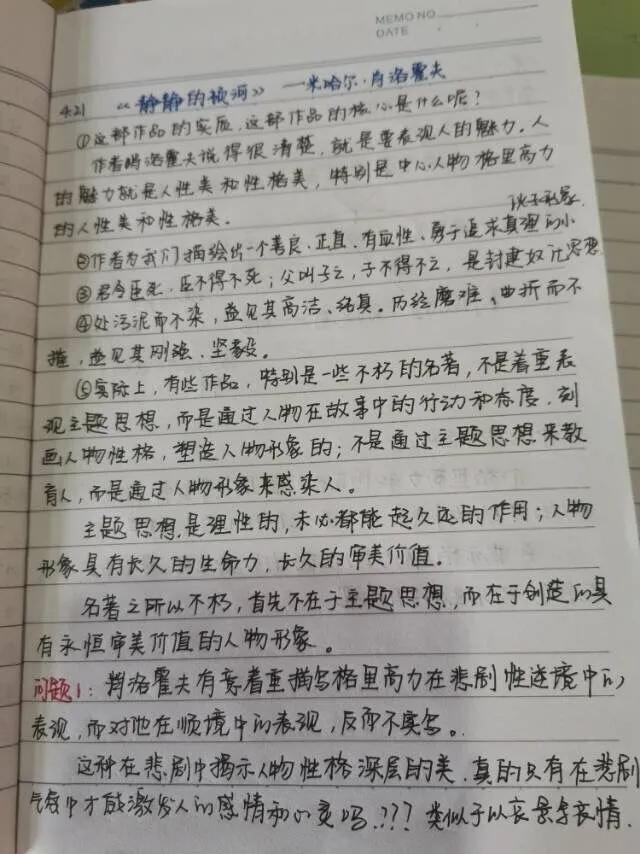 MEMO NO.
DATE
4.21 《静静的顿河》 —米哈尔·肖洛霍夫
①这部作品的实质,这部作品的核心是什么呢?
作者肖洛霍夫说得很清楚,就是要表现人的魅力。人
的魅力就是人性美和性格美,特别是中心人物格里高力
的人性美和性格美。
②作者为我们描绘出一个善良、正直、有血性、勇于追求真理的小
伙子形象.
③君令臣死,臣不得不死;父叫子亡,子不得不亡,是封建奴化思想.
④处污泥而不染,益见其高洁、纯真。历经磨难、曲折而不
摧,益见其刚强、坚毅。
⑤实际上,有些作品,特别是一些不朽的名著,不是着重表
现主题思想,而是通过人物在故事中的行动和态度,刻
画人物性格,塑造人物形象的;不是通过主题思想来教
育人,而是通过人物形象来感染人。
主题思想是理性的,未必都能起久远的作用;人物
形象具有长久的生命力,长久的审美价值。
名著之所以不朽,首先不在于主题思想,而在于创造的具
有永恒审美价值的人物形象。
问题1:肖洛霍夫有意着重描写格里高力在悲剧性逆境中的
表现,而对他在顺境中的表现,反而不实写。
这种在悲剧中揭示人物性格深层的美,真的只有在悲剧
气氛中才能激发人的感情和心灵吗???类似于以哀景写哀情.